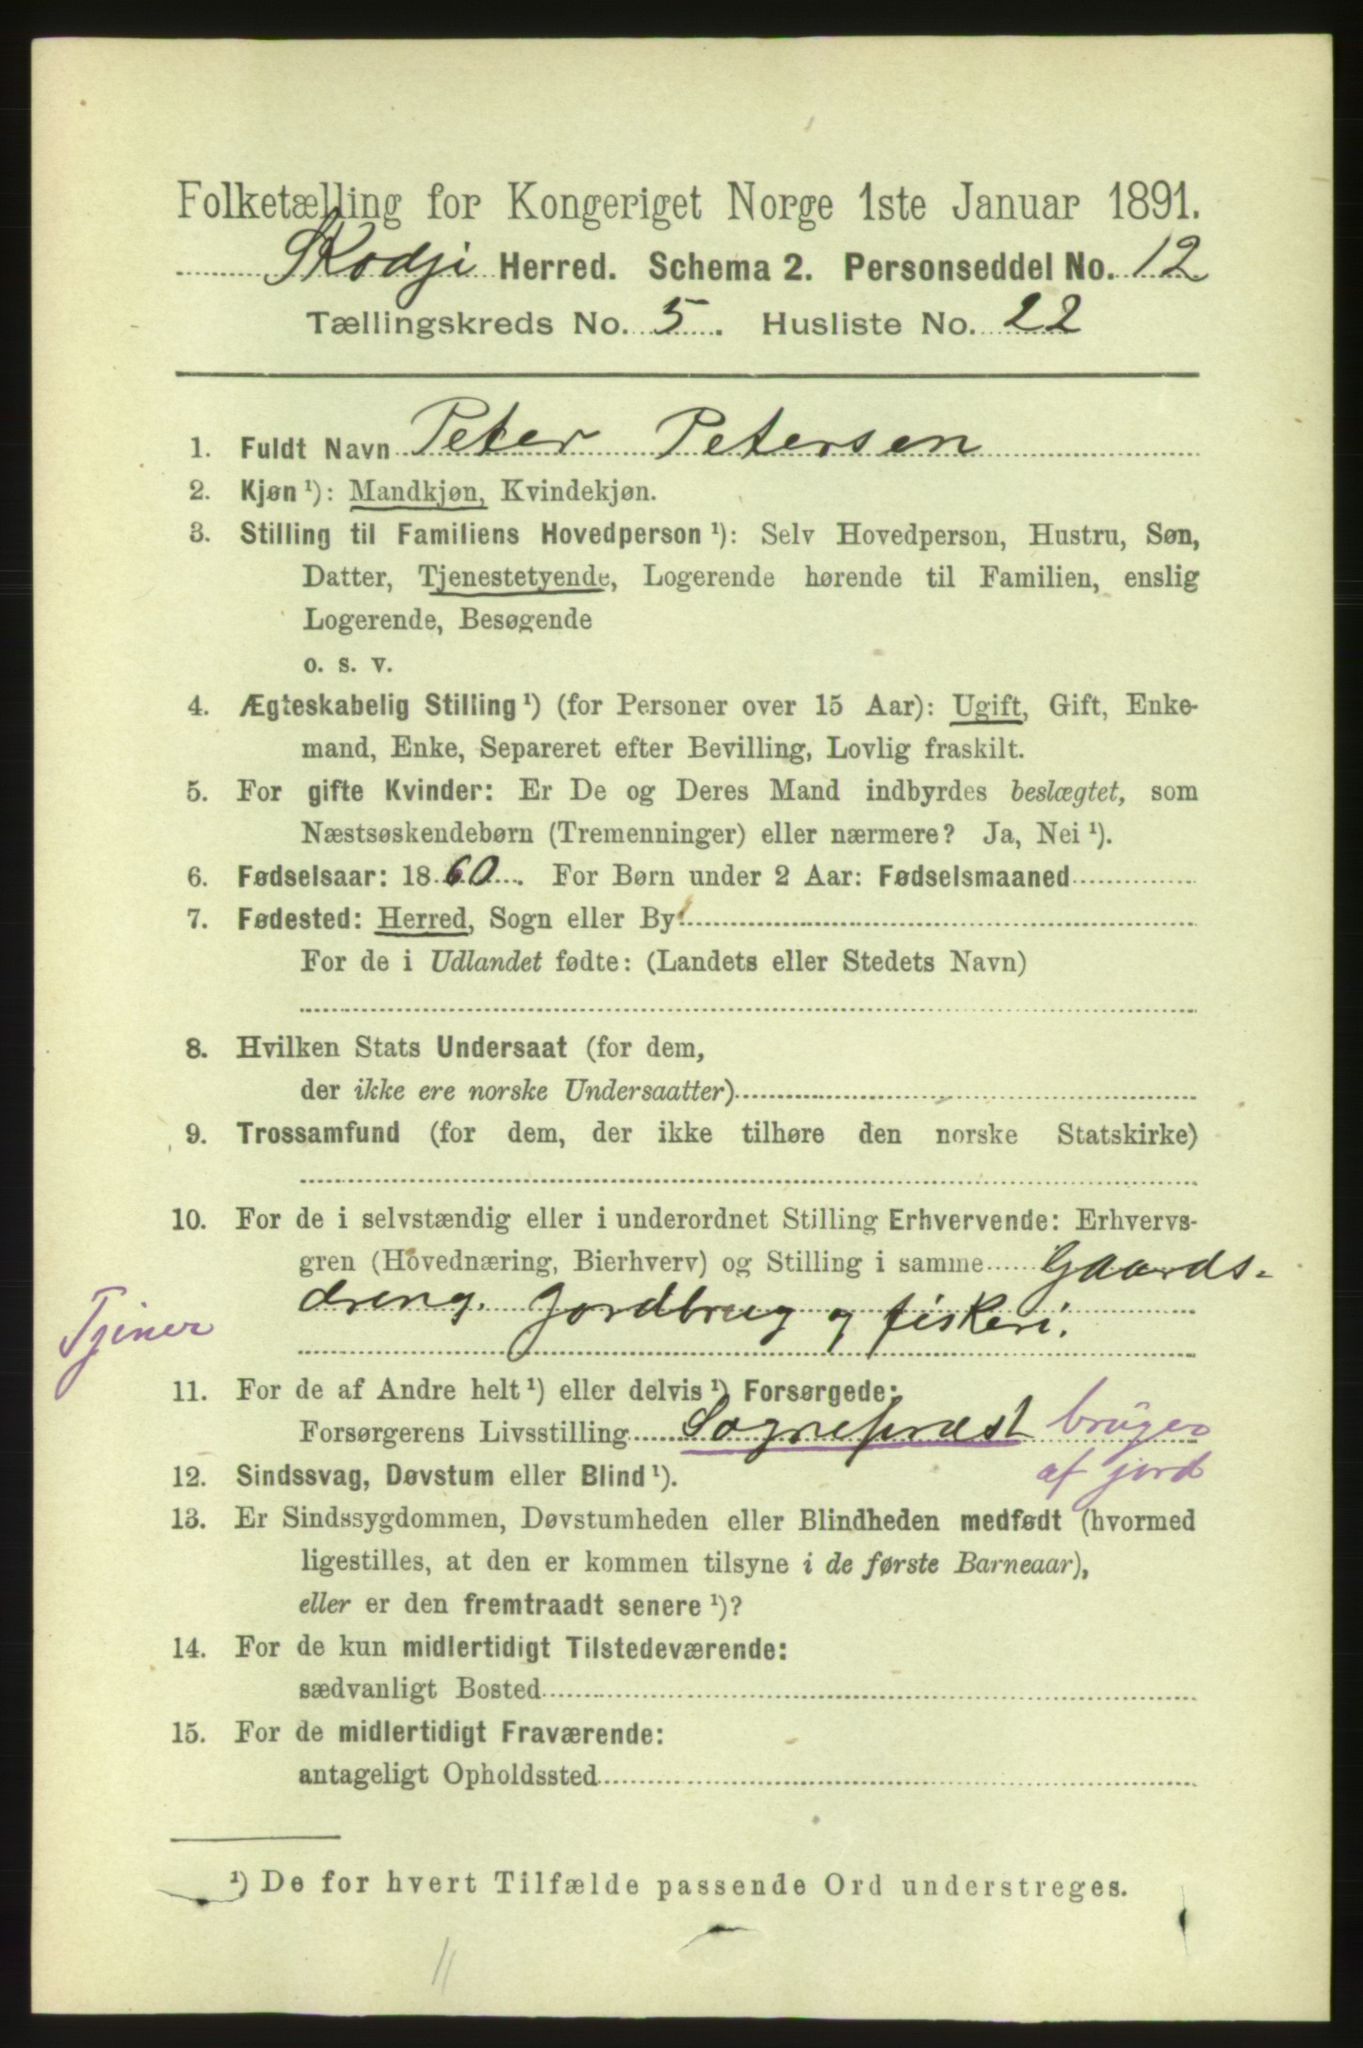 Folketælling for Kongeriget Norge 1ste Januar 1891.
Skodje Herred. Schema 2. Personseddel No. 12
Tællingskreds No. 5. Husliste No. 22
1. Fuldt Navn Peter Petersen
2. Kjøn ¹): Mandkjøn, Kvindekjøn.
3. Stilling til Familiens Hovedperson ¹): Selv Hovedperson, Hustru, Søn,
Datter, Tjenestetyende, Logerende hørende til Familien, enslig
Logerende, Besøgende
o. s. v.
4. Ægteskabelig Stilling ¹) (for Personer over 15 Aar): Ugift, Gift, Enke-
mand, Enke, Separeret efter Bevilling, Lovlig fraskilt.
5. For gifte Kvinder: Er De og Deres Mand indbyrdes beslægtet, som
Næstsøskendebørn (Tremenninger) eller nærmere? Ja, Nei ¹).
6. Fødselsaar: 1860. For Børn under 2 Aar: Fødselsmaaned
7. Fødested: Herred, Sogn eller By
For de i Udlandet fødte: (Landets eller Stedets Navn)
8. Hvilken Stats Undersaat (for dem,
der ikke ere norske Undersaatter)
9. Trossamfund (for dem, der ikke tilhøre den norske Statskirke)
10. For de i selvstændig eller i underordnet Stilling Erhvervende: Erhvervs-
gren (Hovednæring, Bierhverv) og Stilling i samme Gaards-
dreng. Jordbrug og fiskeri.
Tjener
11. For de af Andre helt ¹) eller delvis ¹) Forsørgede:
Forsørgerens Livsstilling Sognepræst bruger
af jord
12. Sindssvag, Døvstum eller Blind ¹).
13. Er Sindssygdommen, Døvstumheden eller Blindheden medfødt (hvormed
ligestilles, at den er kommen tilsyne i de første Barneaar),
eller er den fremtraadt senere ¹)?
14. For de kun midlertidigt Tilstedeværende:
sædvanligt Bosted
15. For de midlertidigt Fraværende:
antageligt Opholdssted
¹) De for hvert Tilfælde passende Ord understreges.